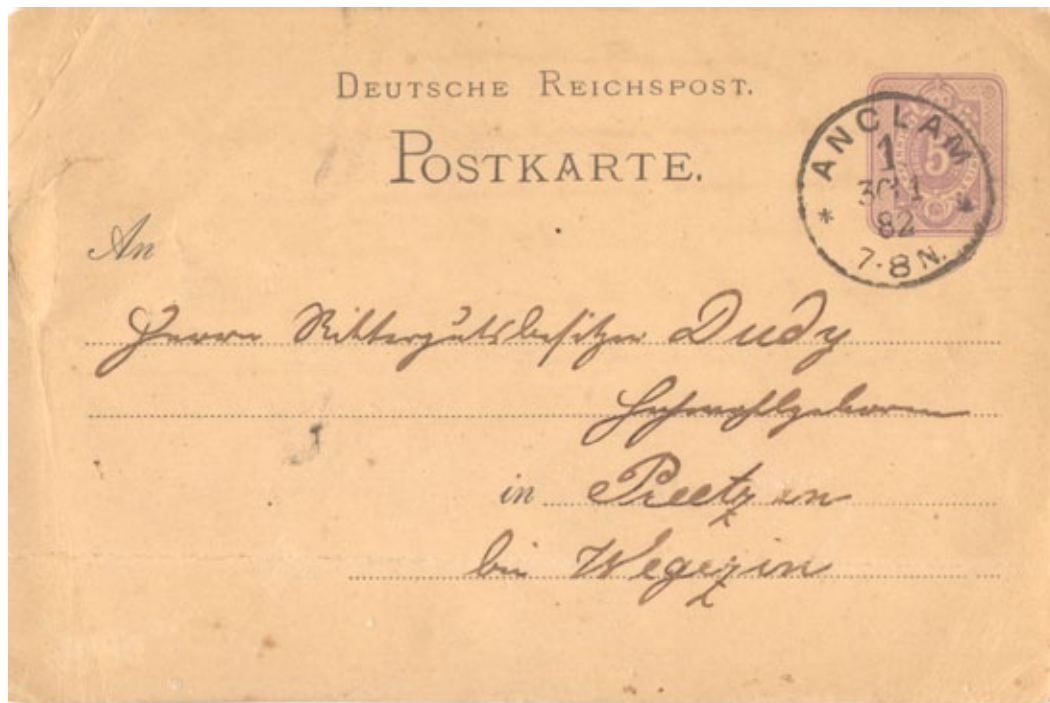 DEUTSCHE REICHSPOST.
POSTKARTE.
ANCLAM
1
82
7-8N.
5
An
Herrn Rittergutsbesitzer Dudy
Hochwohlgeboren
in Preetzen
bei Wegezin